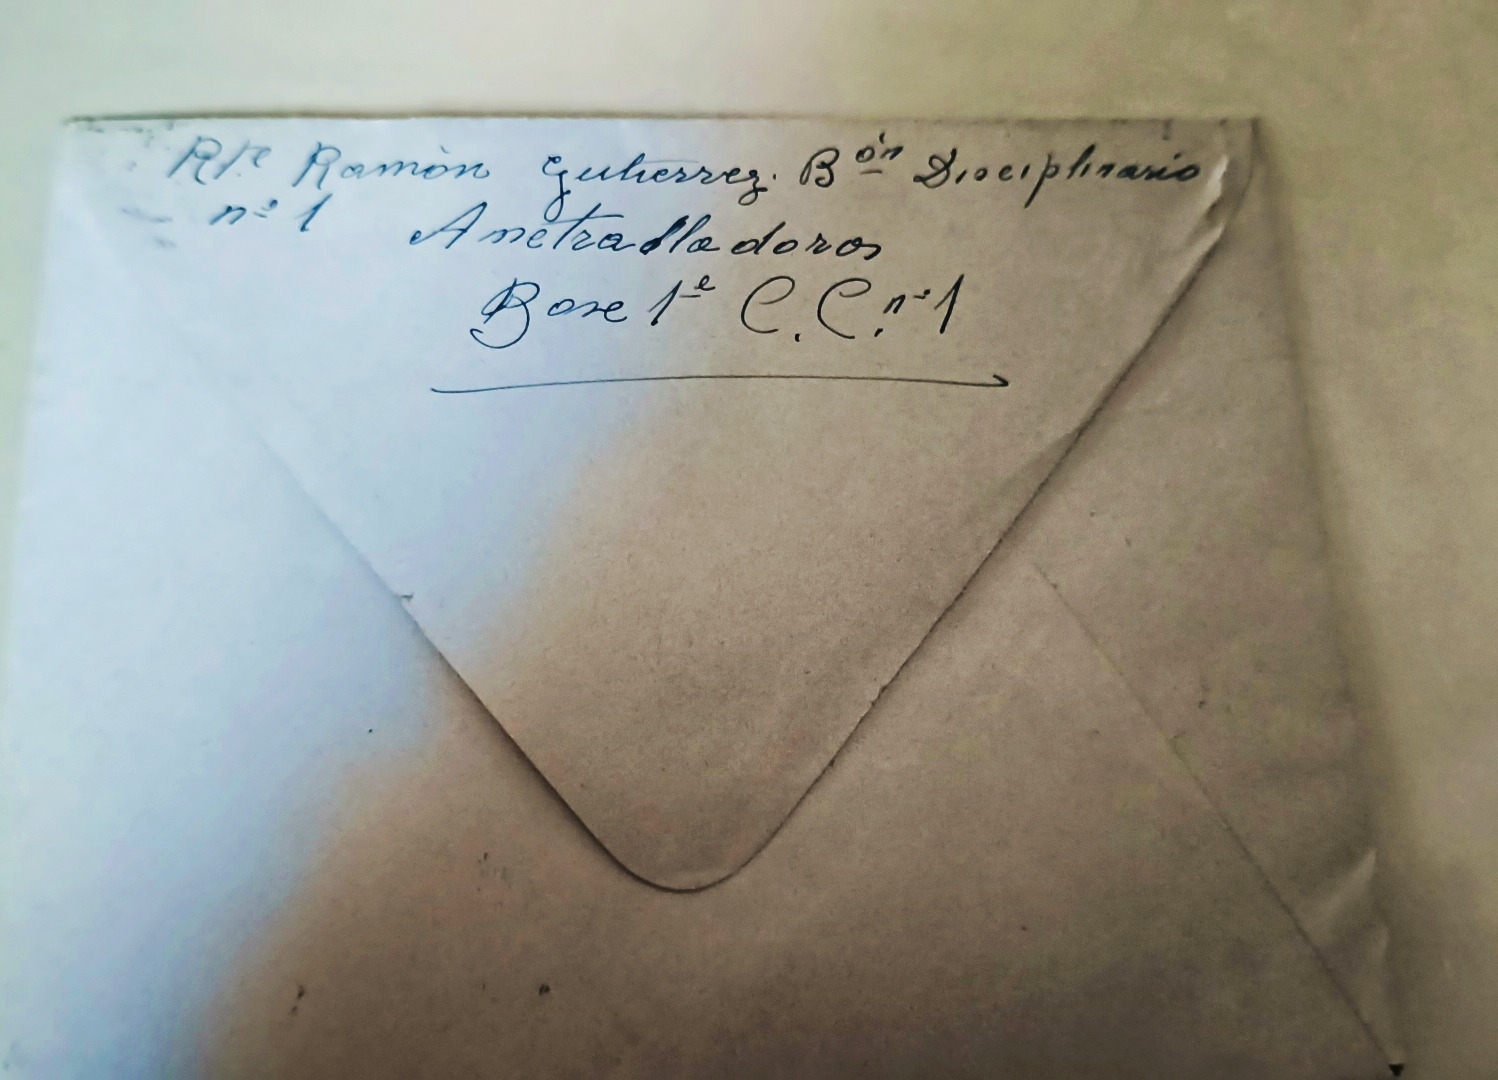 Rte Ramón Gutierrez. Bón Disciplinario
nº 1 Ametralladoras
Base 1ª C.C. nº 1